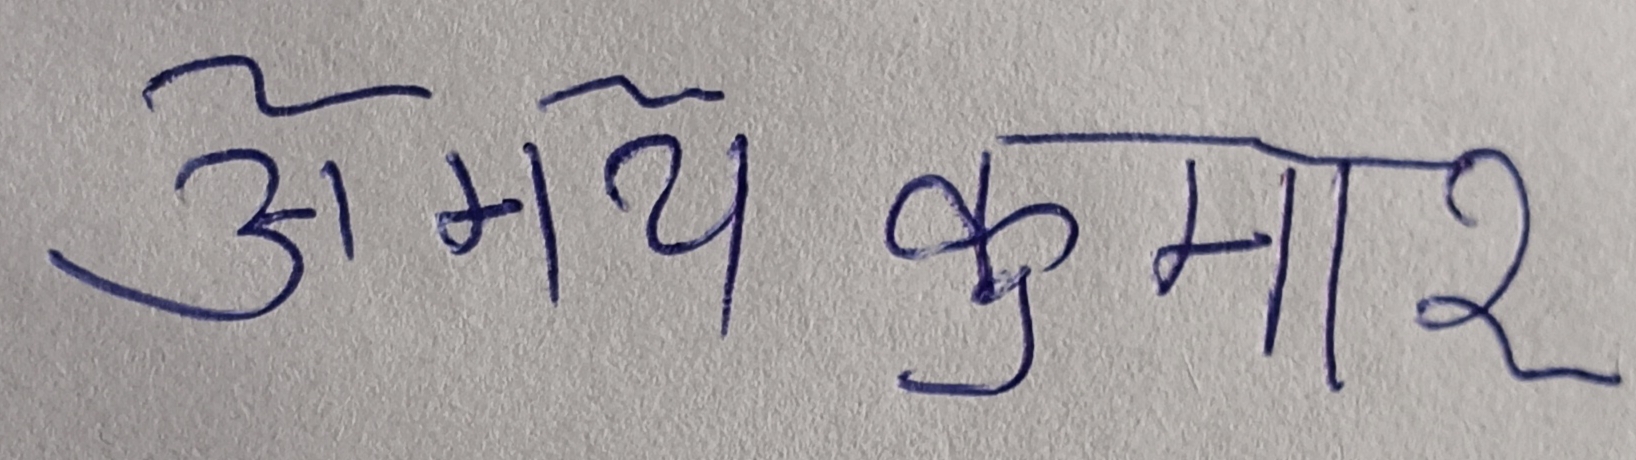 अमय कुमार